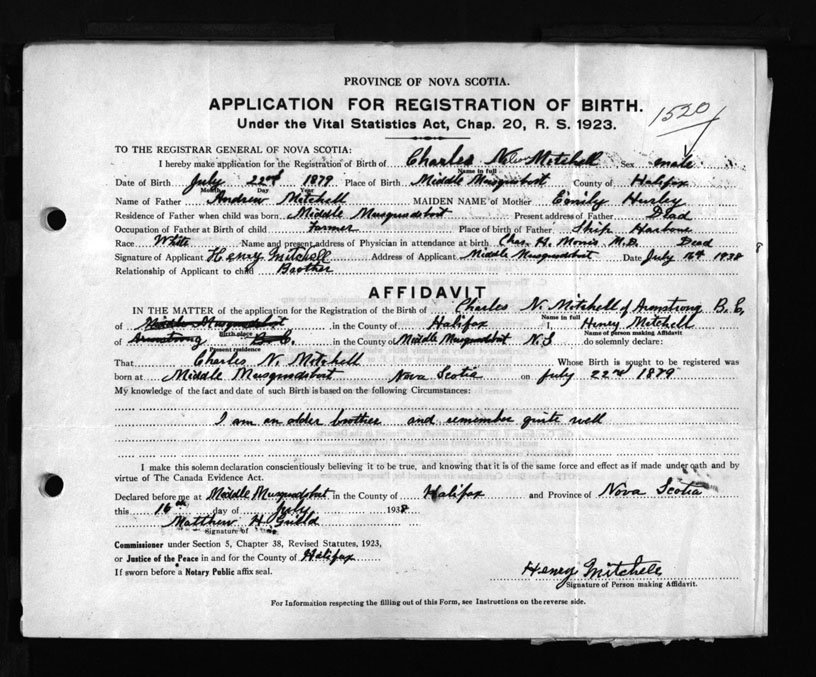 PROVINCE OF NOVA SCOTIA.
APPLICATION FOR REGISTRATION OF BIRTH.
1520
Under the Vital Statistics Act, Chap. 20, R. S. 1923.
TO THE REGISTRAR GENERAL OF NOVA SCOTIA:
I hereby make application for the Registration of Birth of Charles N. Mitchell Sex male
Name in full
Date of Birth July 22nd 1879 Place of Birth Middle Musquodoboit County of Halifax
Month Day Year
Name of Father Andrew Mitchell MAIDEN NAME of Mother Emily Hurley
Residence of Father when child was born Middle Musquodoboit Present address of Father Dead
Occupation of Father at Birth of child Farmer Place of birth of Father Ship Harbour
Race White Name and present address of Physician in attendance at birth Chas. H. Morris M.D. Dead
Signature of Applicant Henry Mitchell Address of Applicant Middle Musquodoboit Date July 16th 1938
Relationship of Applicant to child Brother
AFFIDAVIT
IN THE MATTER of the application for the Registration of the Birth of Charles N. Mitchell of Armstrong B.C.
Name in full
of Middle Musquodoboit in the County of Halifax I, Henry Mitchell
Birth place Name of person making Affidavit
of Armstrong B.C. in the County of Middle Musquodoboit N.S do solemnly declare:
Present residence
That Charles N. Mitchell Whose Birth is sought to be registered was
born at Middle Musquodoboit Nova Scotia on July 22nd 1879
My knowledge of the fact and date of such Birth is based on the following Circumstances:
I am an older brother and remember quite well
I make this solemn declaration conscientiously believing it to be true, and knowing that it is of the same force and effect as if made under oath and by
virtue of The Canada Evidence Act.
Declared before me at Middle Musquodoboit in the County of Halifax and Province of Nova Scotia
this 16th day of July 1938
Matthew H. Guild
Signature of
Commissioner under Section 5, Chapter 38, Revised Statutes, 1923,
or Justice of the Peace in and for the County of Halifax
If sworn before a Notary Public affix seal.
Henry Mitchell
Signature of Person making Affidavit.
For Information respecting the filling out of this Form, see Instructions on the reverse side.